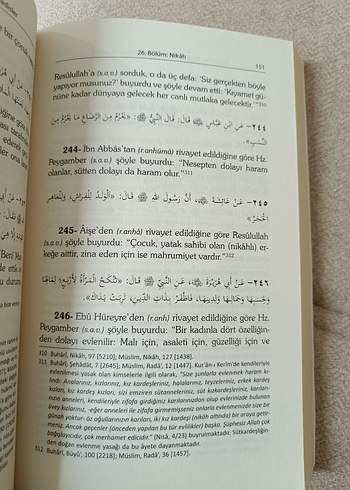 26. Bölüm: Nikâh
151
Resûlullah'a (s.a.v.) sorduk, o da üç defa: 'Siz gerçekten böyle
yapıyor musunuz?' buyurdu ve şöyle devam etti: 'Kıyamet gü-
nüne kadar dünyaya gelecek her canlı mutlaka gelecektir.'"310
٢٤٤- عَنِ ابْنِ عَبَّاسٍ قَالَ: قَالَ النَّبِيُّ: «يَحْرُمُ مِنَ الرَّضَاعِ مَا يَحْرُمُ مِنَ
النَّسَبِ».
244- İbn Abbâs'tan (r.anhümâ) rivayet edildiğine göre Hz.
Peygamber (s.a.v.) şöyle buyurdu: "Nesepten dolayı haram
olanlar, sütten dolayı da haram olur."311
٢٤٥- عَنْ عَائِشَةَ، أَنَّ رَسُولَ اللهِ قَالَ: «الْوَلَدُ لِلْفِرَاشِ، وَلِلْعَاهِرِ
الْحَجَرُ»
245- Âişe'den (r.anhâ) rivayet edildiğine göre Resûlullah
(s.a.v.) şöyle buyurdu: "Çocuk, yatak sahibi olan (nikâhlı) er-
keğe aittir, zina eden için ise mahrumiyet vardır."312
٢٤٦- عَنْ أَبِي هُرَيْرَةَ، عَنِ النَّبِيِّ قَالَ: «تُنْكَحُ الْمَرْأَةُ لِأَرْبَعٍ: لِمَالِهَا
وَلِحَسَبِهَا وَجَمَالِهَا وَلِدِينِهَا، فَاظْفَرْ بِذَاتِ الدِّينِ، تَرِبَتْ يَدَاكَ».
246- Ebû Hüreyre'den (r.anh) rivayet edildiğine göre Hz.
Peygamber (s.a.v.) şöyle buyurdu: "Bir kadınla dört özelliğin-
den dolayı evlenilir: Malı için, asaleti için, güzelliği için ve
310 Buhârî, Nikâh, 97 [5210]; Müslim, Nikâh, 127 [1438].
311 Buhârî, Şehâdât, 7 [2645]; Müslim, Radâ', 12 [1447]. Kur'ân-ı Kerîm'de kendileriyle
evlenilmesi yasak olan kimselerle ilgili olarak, "Size şunlarla evlenmek haram kı-
lındı: Analarınız, kızlarınız, kız kardeşleriniz, halalarınız, teyzeleriniz, erkek kardeş
kızları, kız kardeş kızları, sizi emziren sütanneleriniz, süt kızkardeşleriniz, karıları-
nızın anneleri, kendileriyle zifafa girdiğiniz karılarınızdan olup evlerinizde bulunan
üvey kızlarınız, -eğer anneleri ile zifafa girmemişseniz onlarla evlenmenizde size bir
günah yoktur- öz oğullarınızın karıları, iki kız kardeşi (nikâh altında) bir araya getir-
meniz. Ancak geçenler (önceden yapılan bu tür evlilikler) başka. Şüphesiz Allah çok
bağışlayıcıdır, çok merhamet edicidir." (Nisâ, 4/23) buyrulmaktadır. Sütkardeşliğin-
den doğan evlenme yasağı da bu âyete dayanmaktadır.
312 Buhârî, Büyû', 100 [2218]; Müslim, Radâ', 36 [1457].